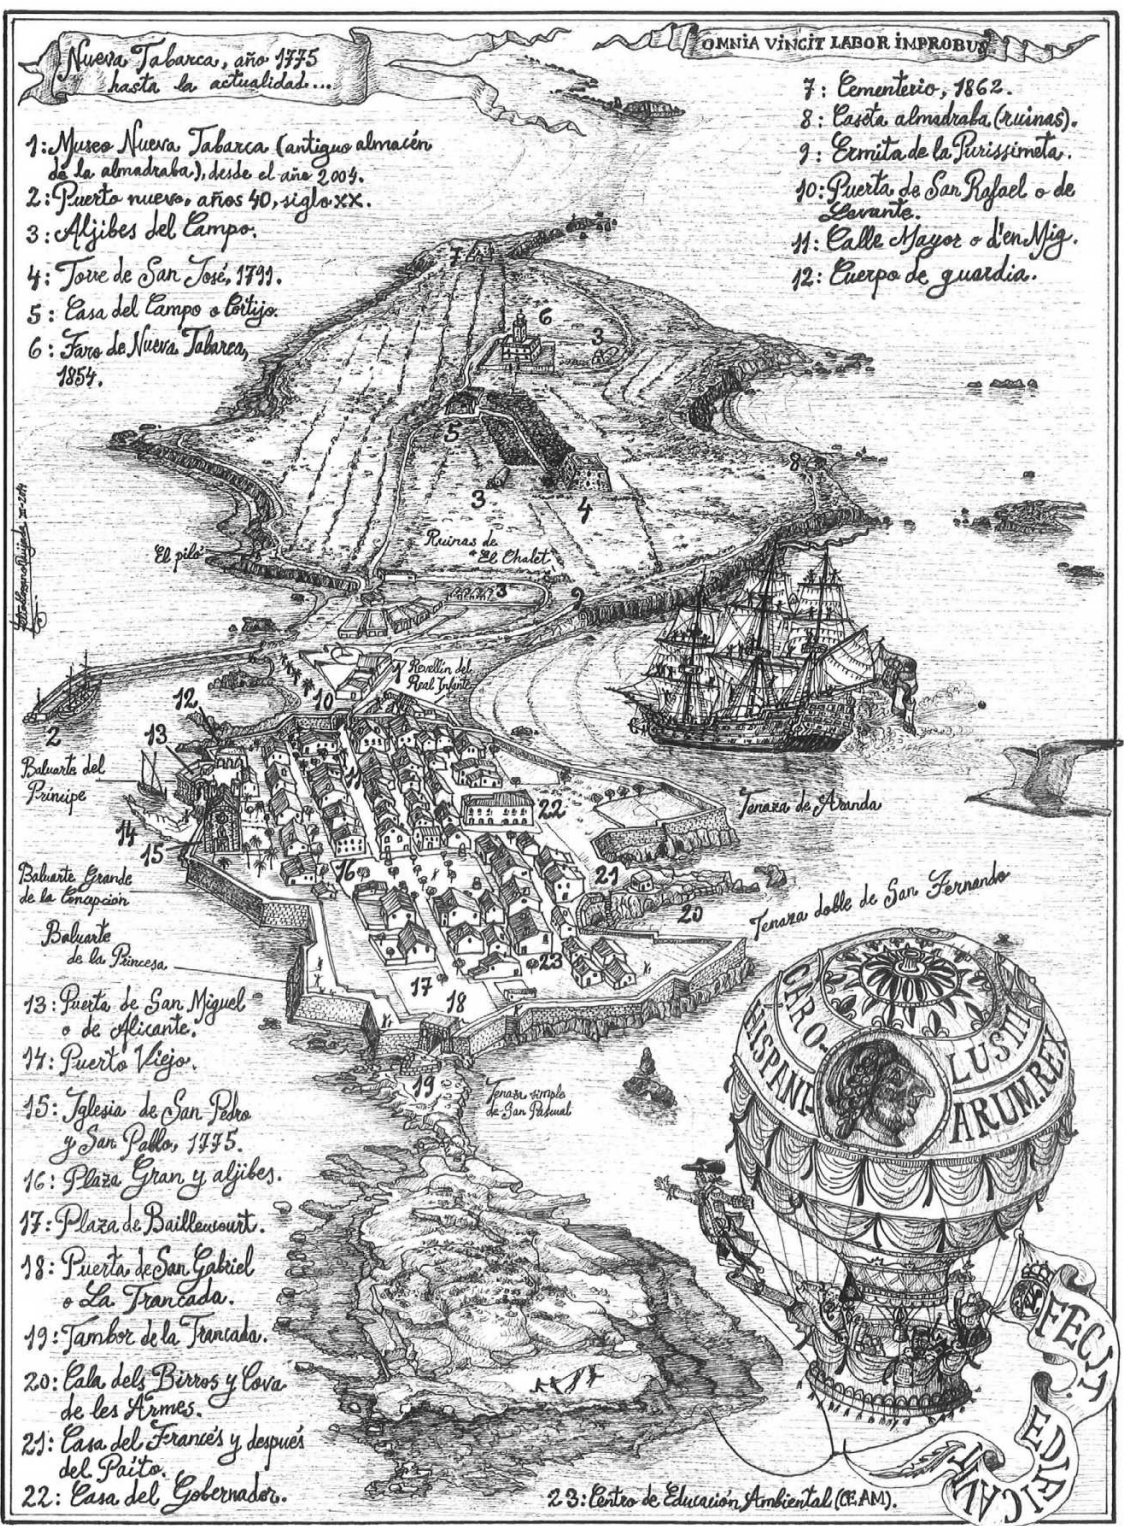 Nueva Tabarca, año 1775
hasta la actualidad...
OMNIA VINCIT LABOR IMPROBUS
1: Museo Nueva Tabarca (antiguo almacén
de la almadraba), desde el año 2004.
2: Puerto nuevo, años 40, siglo XX.
3: Aljibes del Campo.
4: Torre de San José, 1791.
5: Casa del Campo o Cortijo.
6: Faro de Nueva Tabarca,
1854.
7: Cementerio, 1862.
8: Caseta almadraba (ruinas).
9: Ermita de la Purissimeta.
10: Puerta de San Rafael o de
Levante.
11: Calle Mayor o d'en Mig.
12: Cuerpo de guardia.
7
6
3
5
8
3
4
Ruinas de
"El Chalet"
El piló
3
9
1
Revellín del
Real Infante
12
10
2
13
11
Baluarte del
Príncipe
Tenaza de Aranda
22
14
15
16
21
20
Baluarte Grande
de la Concepcion
Tenaza doble de San Fernando
Baluarte
de la Princesa
23
17
18
19
Tenaza simple
de San Pascual
13: Puerta de San Miguel
o de Alicante.
14: Puerto Viejo.
15: Iglesia de San Pedro
y San Pablo, 1775.
16: Plaza Gran y aljibes.
17: Plaza de Baillencourt.
18: Puerta de San Gabriel
o La Trancada.
19: Tambor de la Trancada.
20: Cala dels Birros y Cova
de les Armes.
21: Casa del Francés y después
del Paíto.
22: Casa del Gobernador.
23: Centro de Educación Ambiental (CEAM).
CARO-
LUS III
HISPANI-
ARUM.REX
FECIT
EDIFICAVIT